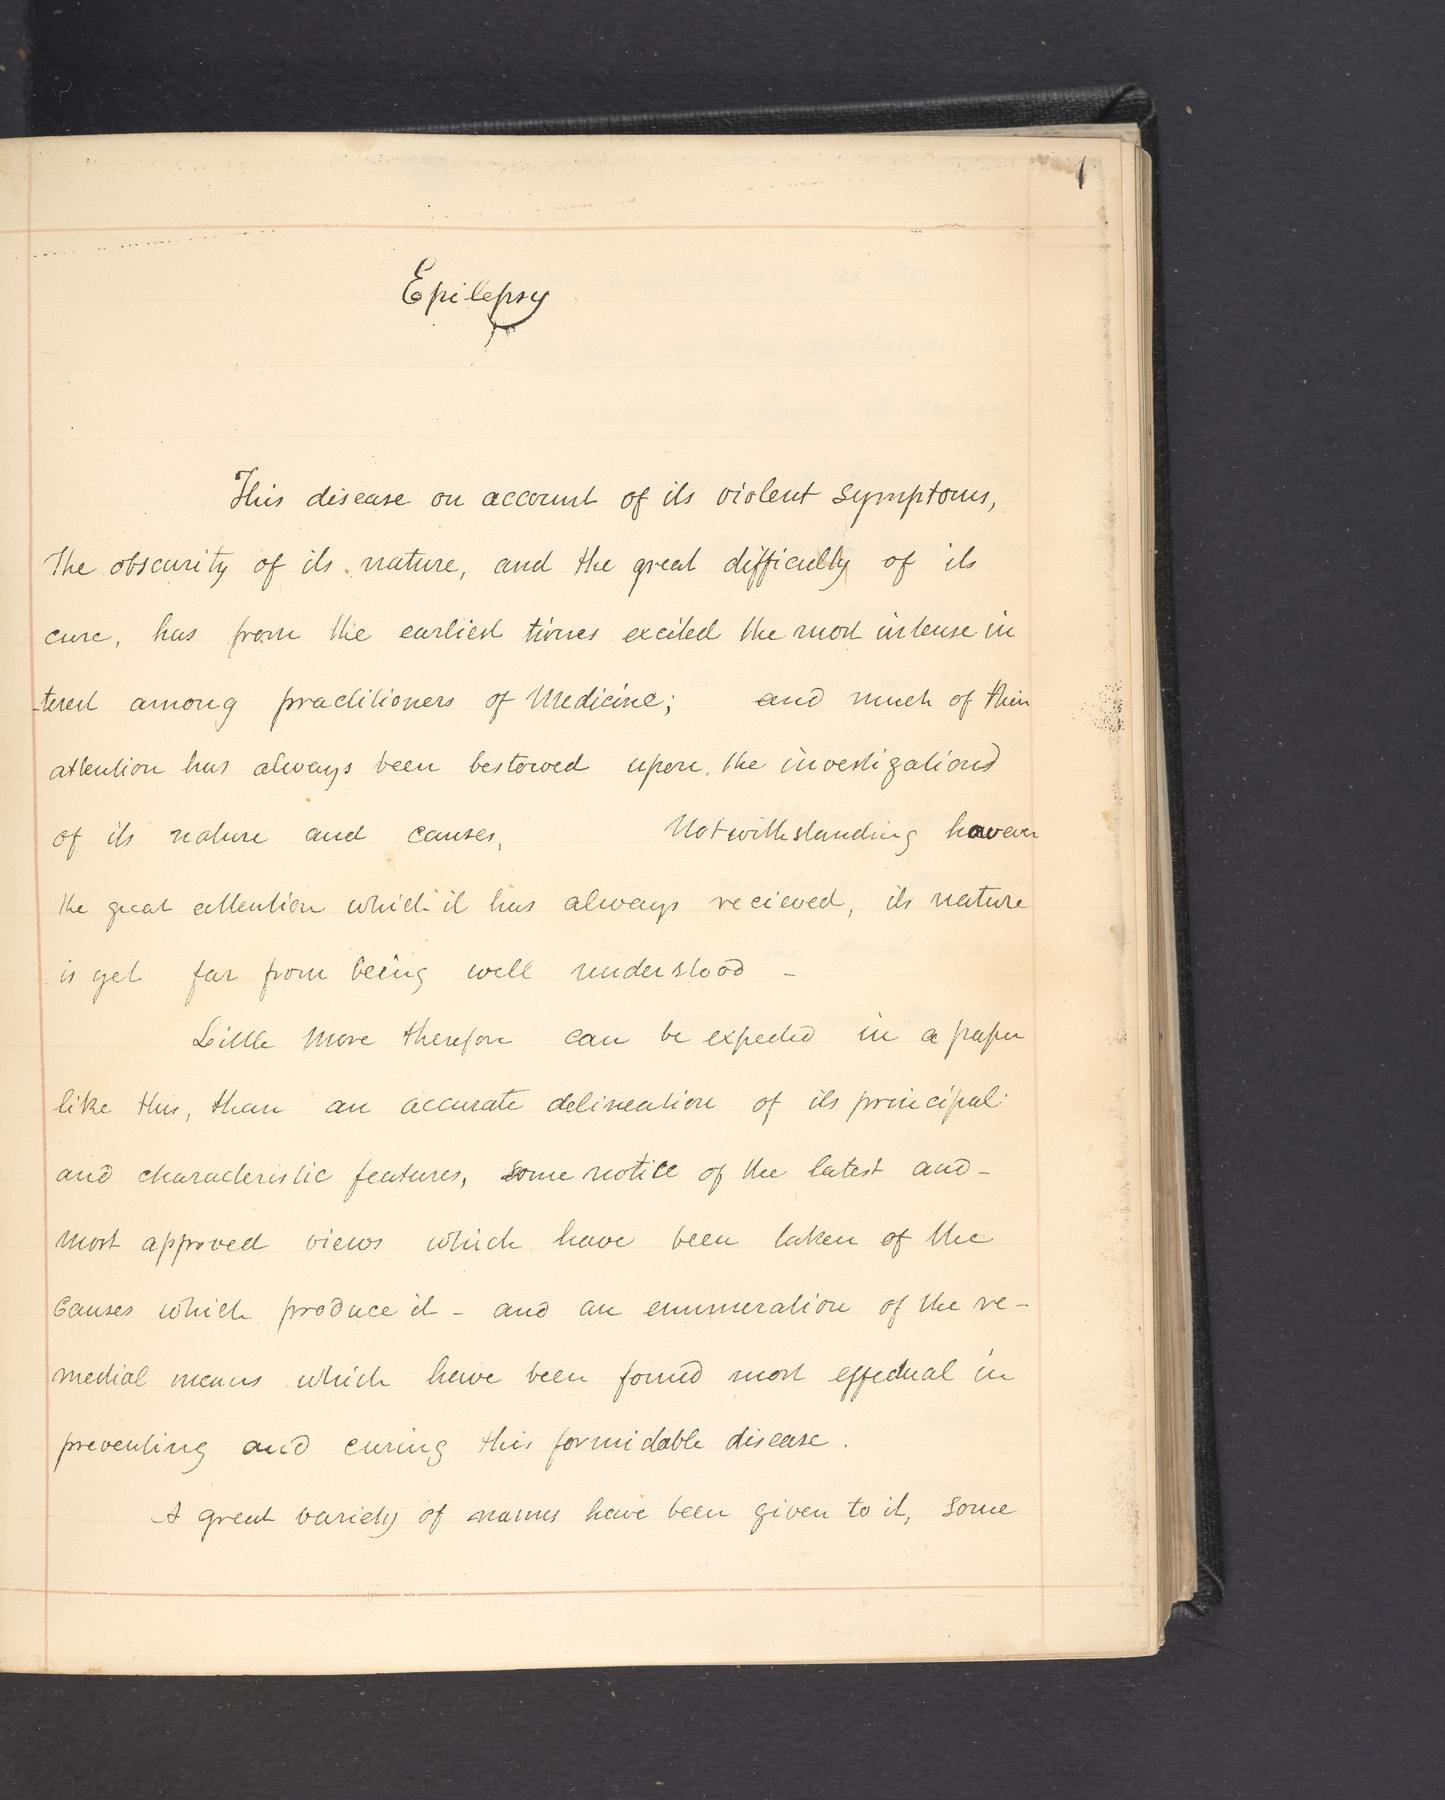 1
Epilepsy
This disease on account of its violent symptoms,
the obscurity of its nature, and the great difficulty of its
cure, has from the earliest times excited the most intense in
-terest among practitioners of Medicine; and much of their
attention has always been bestowed upon the investigations
of its nature and causes, Notwithstanding however
the great attention which it has always recieved, its nature
is yet far from being well understood -
Little more therefore can be expected in a paper
like this, than an accurate delineation of its principal
and characteristic features, some notice of the latest and-
most approved views which have been taken of the
causes which produce it - and an enumeration of the re-
medial means which have been found most effectual in
preventing and curing this formidable disease.
A great variety of names have been given to it, some